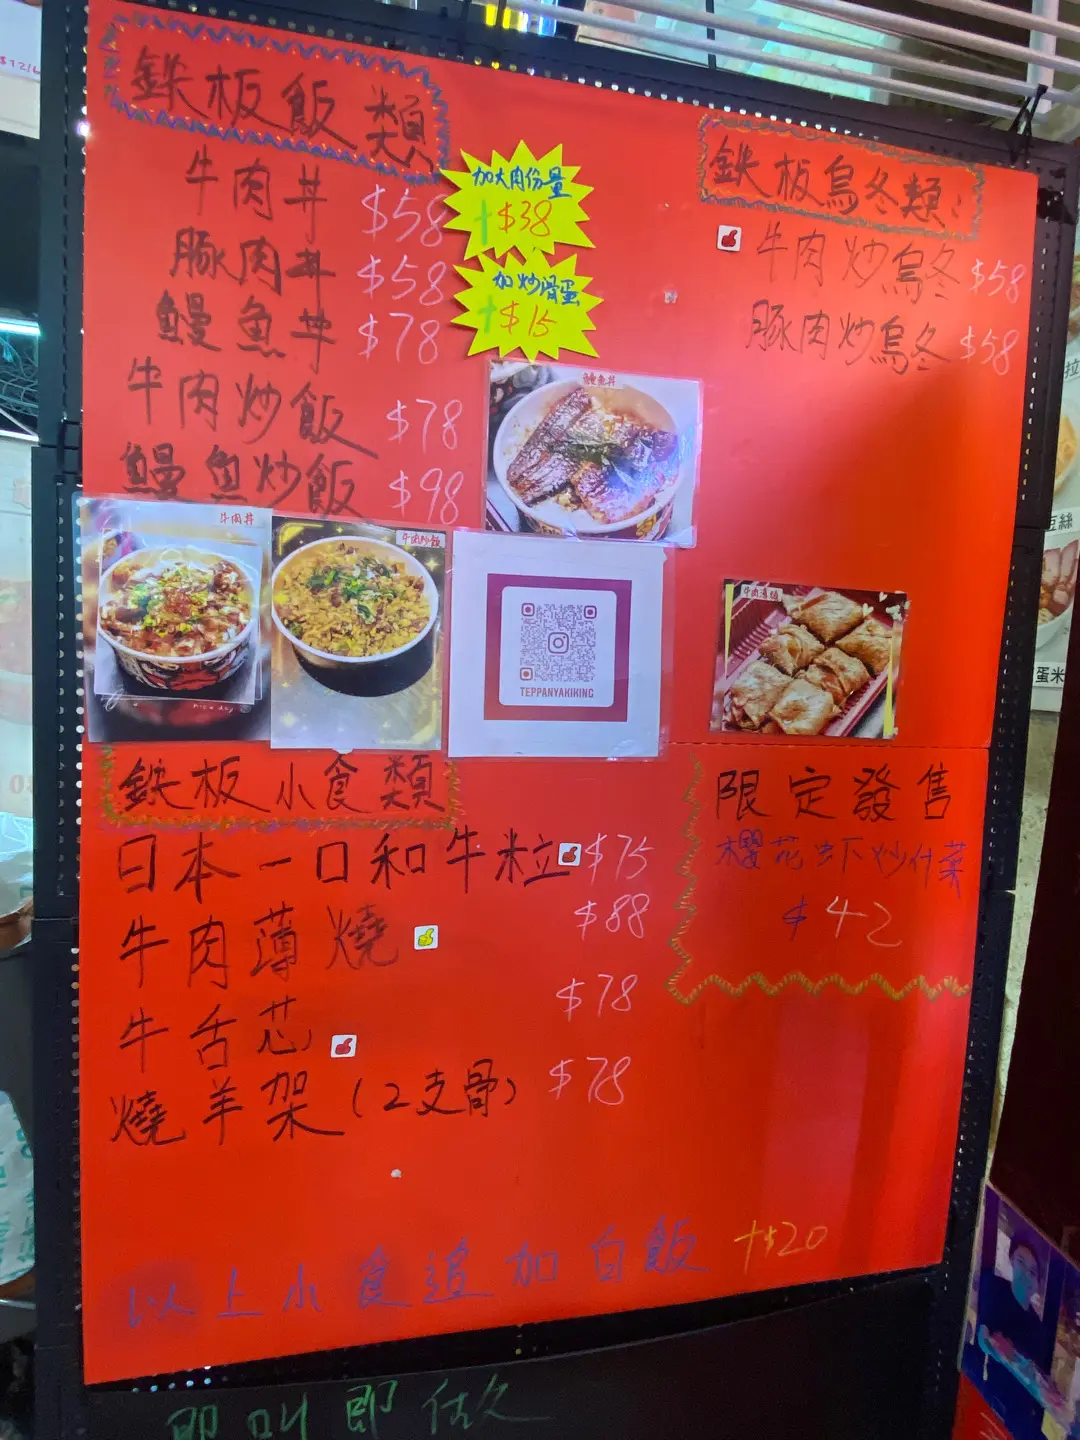 鉄板飯類
牛肉丼 $58
豚肉丼 $58
鰻魚丼 $78
牛肉炒飯 $78
鰻魚炒飯 $98
加大肉份量
+$38
加炒滑蛋
+$15
鉄板烏冬類:
牛肉炒烏冬 $58
豚肉炒烏冬 $58
鰻魚丼
牛肉丼
牛肉炒飯
TEPPANYAKIKING
牛肉薄燒
鉄板小食類
日本一口和牛粒 $75
牛肉薄燒 $88
牛舌芯 $78
燒羊架(2支骨) $78
限定發售
櫻花虾炒什菜
$42
以上小食追加白飯 +$20
即叫即做
豆絲
蛋米